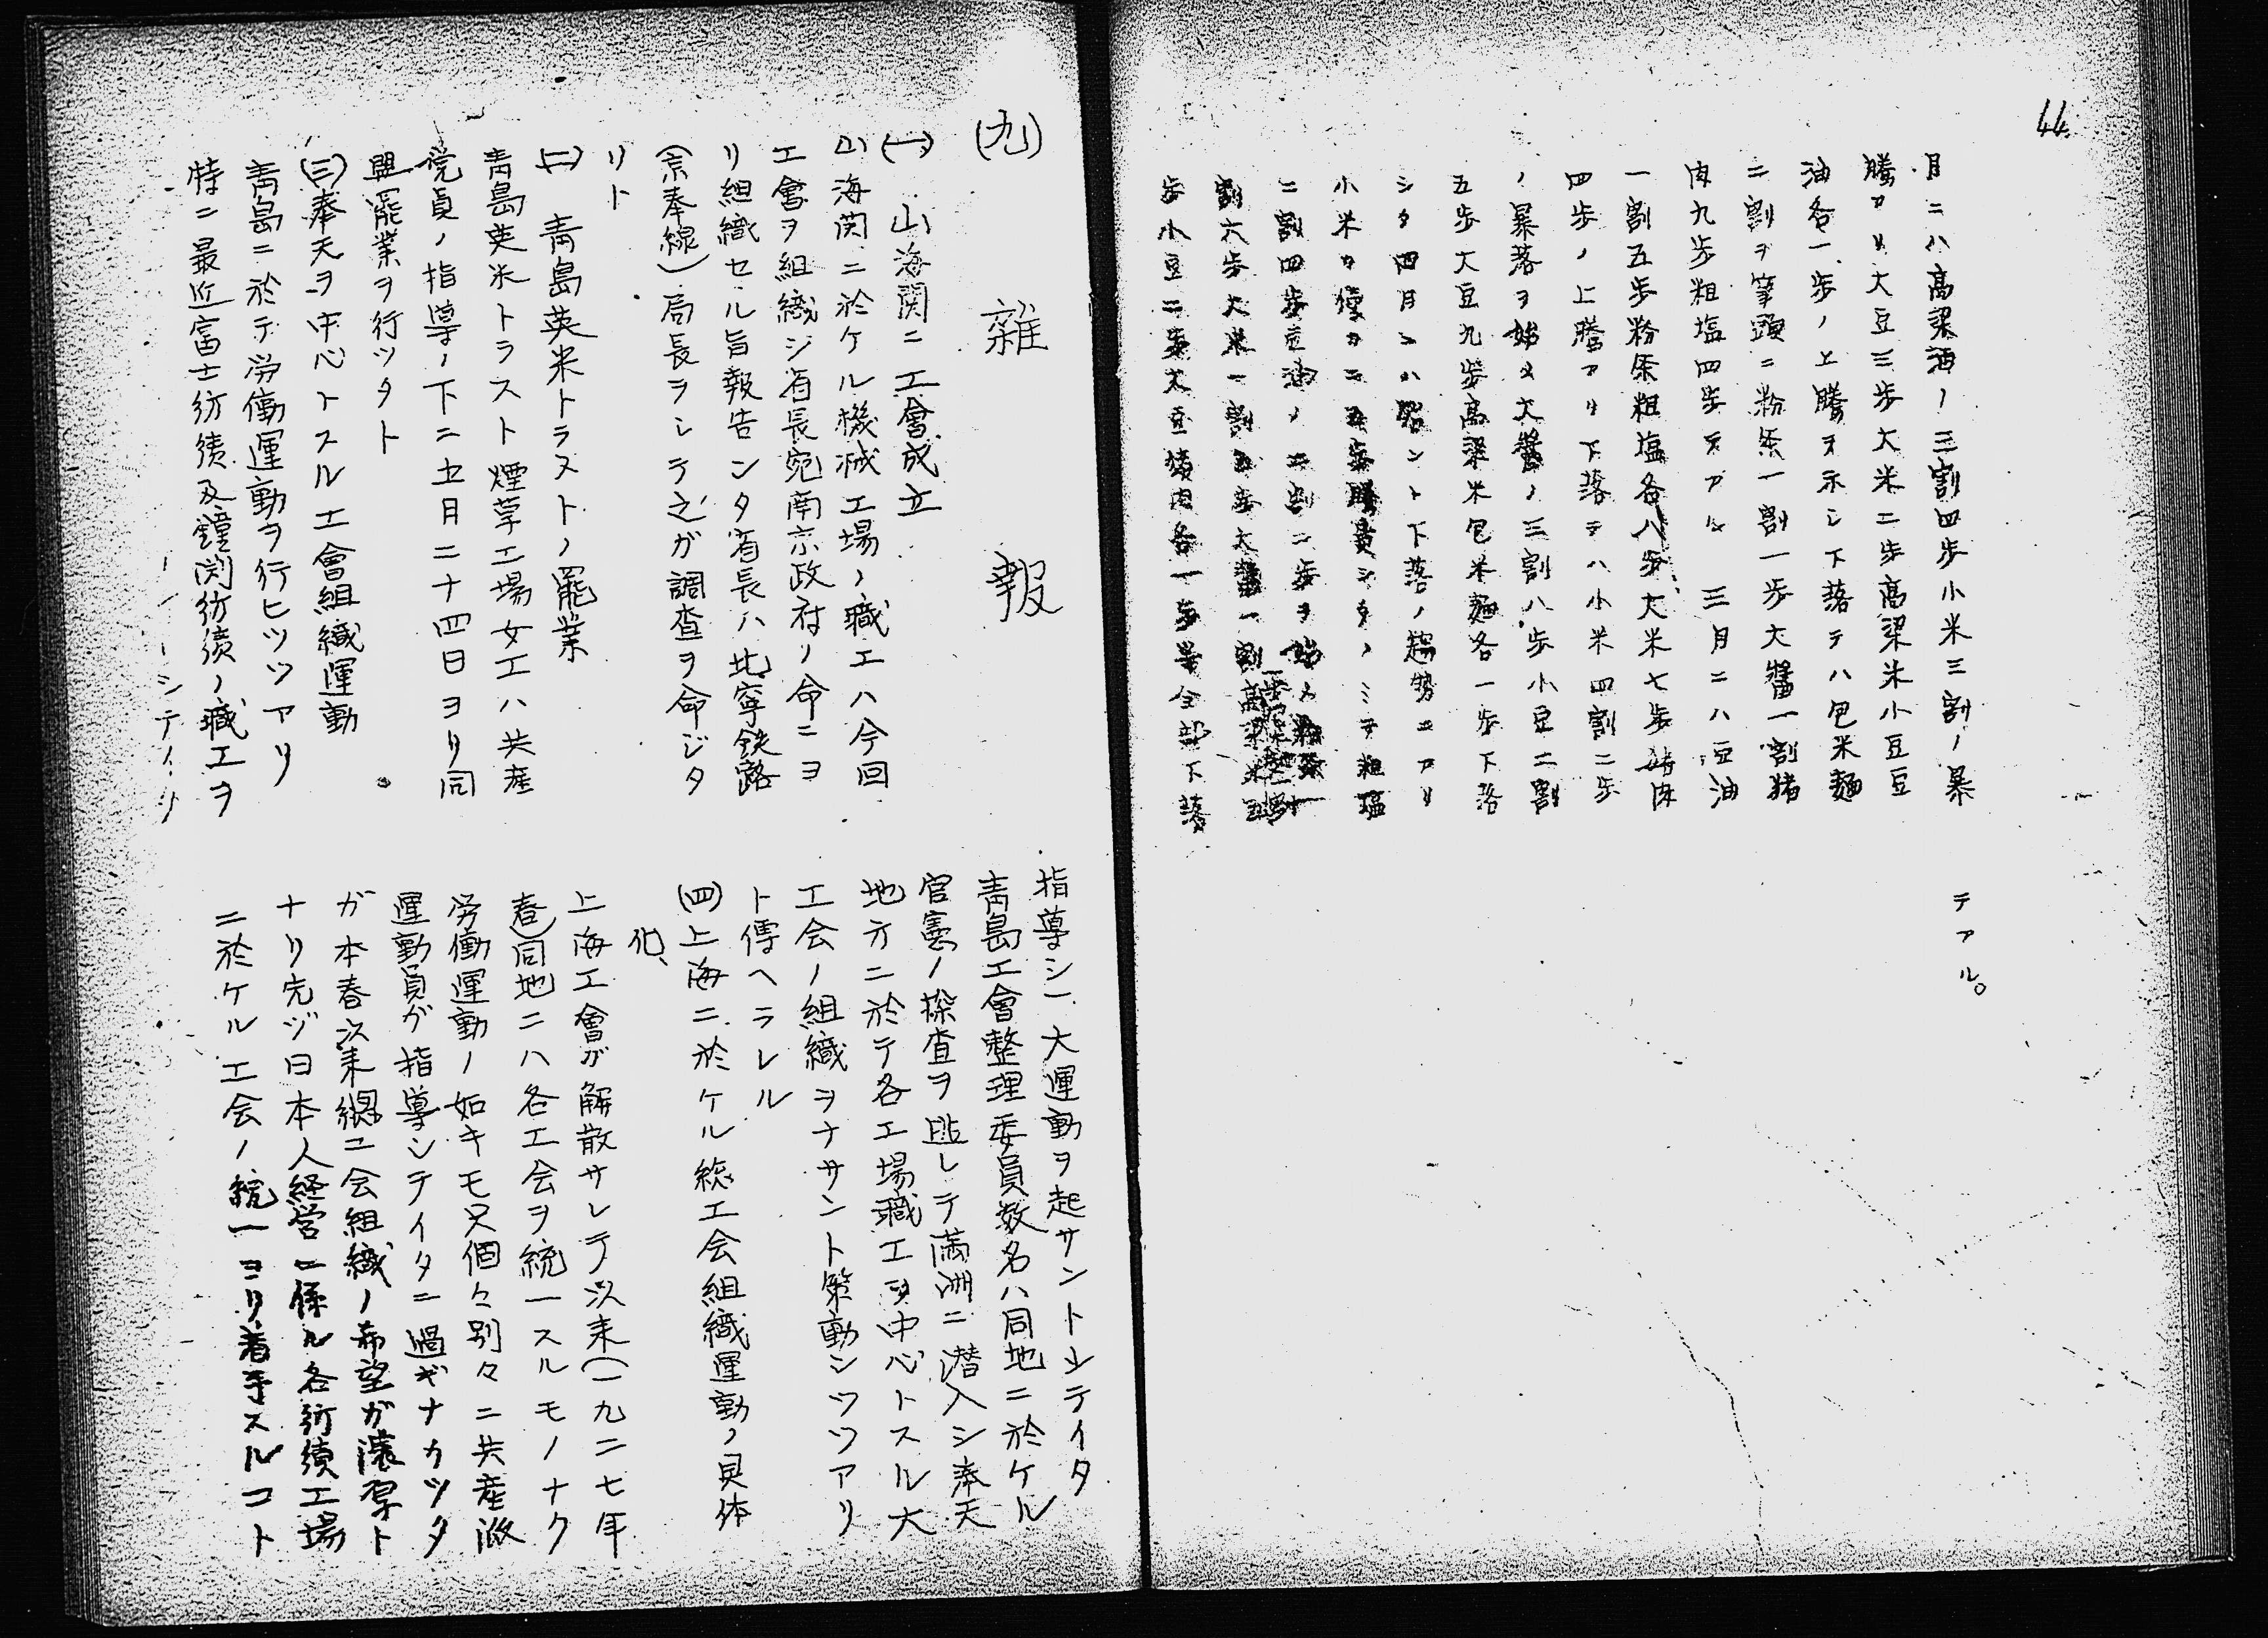 44
月ニハ高粱酒ノ三割四歩小米三割ノ暴
騰アリ大豆三歩大米二歩高粱米小豆豆
油各一歩ノ上騰ヲ示シ下落テハ包米麺
二割ヲ筆頭ニ粉条一割一歩大醤一割猪
肉九歩粗塩四歩テアル 三月ニハ豆油
一割五歩粉条粗塩各八歩大米七歩猪肉
四歩ノ上騰アリ下落テハ小米四割二歩
ノ暴落ヲ始メ大醤ノ三割八歩小豆二割
五歩大豆九歩高粱米包米麺各一歩下落
シタ四月ニハ下落ノ趨勢ニアリ
小米カ僅カニ五歩騰貴シタノミテ粗塩
二割四歩豆油ノ二割二歩ヲ始メ粉条一
割六歩大米一割大醤一割高粱米
歩小豆二歩大豆猪肉各一歩等全部下落
テアル。
(九) 雜報
(一) 山海関ニ工會成立
山海関ニ於ケル機械工場ノ職工ハ今回
工會ヲ組織シ省長宛南京政府ノ命ニヨ
リ組織セル旨報告シタ省長ハ北寧鉄路
(京奉線)局長ヲシテ之ガ調査ヲ命ジタ
リト
(二) 青島英米トラストノ罷業
青島英米トラスト煙草工場女工ハ共産
党員ノ指導ノ下ニ五月二十四日ヨリ同
盟罷業ヲ行ツタト
(三)奉天ヲ中心トスル工會組織運動
青島ニ於テ労働運動ヲ行ヒツツアリ
特ニ最近富士紡績及鐘渕紡績ノ職工ヲ
指導シ一大運動ヲ起サントシテイタ
青島工會整理委員数名ハ同地ニ於ケル
官憲ノ探査ヲ逃レテ満洲ニ潜入シ奉天
地方ニ於テ各工場職工ヲ中心トスル大
工会ノ組織ヲナサント策動シツツアリ
ト傳ヘラレル
(四)上海ニ於ケル総工会組織運動ノ具体
化、
上海工會ガ解散サレテ以来(一九二七年
春)同地ニハ各工会ヲ統一スルモノナク
労働運動ノ如キモ只個々別々ニ共産派
運動員ガ指導シテイタニ過ギナカツタ
ガ本春以来總工会組織ノ希望ガ濃厚ト
ナリ先ヅ日本人経営ニ係ル各紡績工場
ニ於ケル工会ノ統一ヨリ着手スルコト